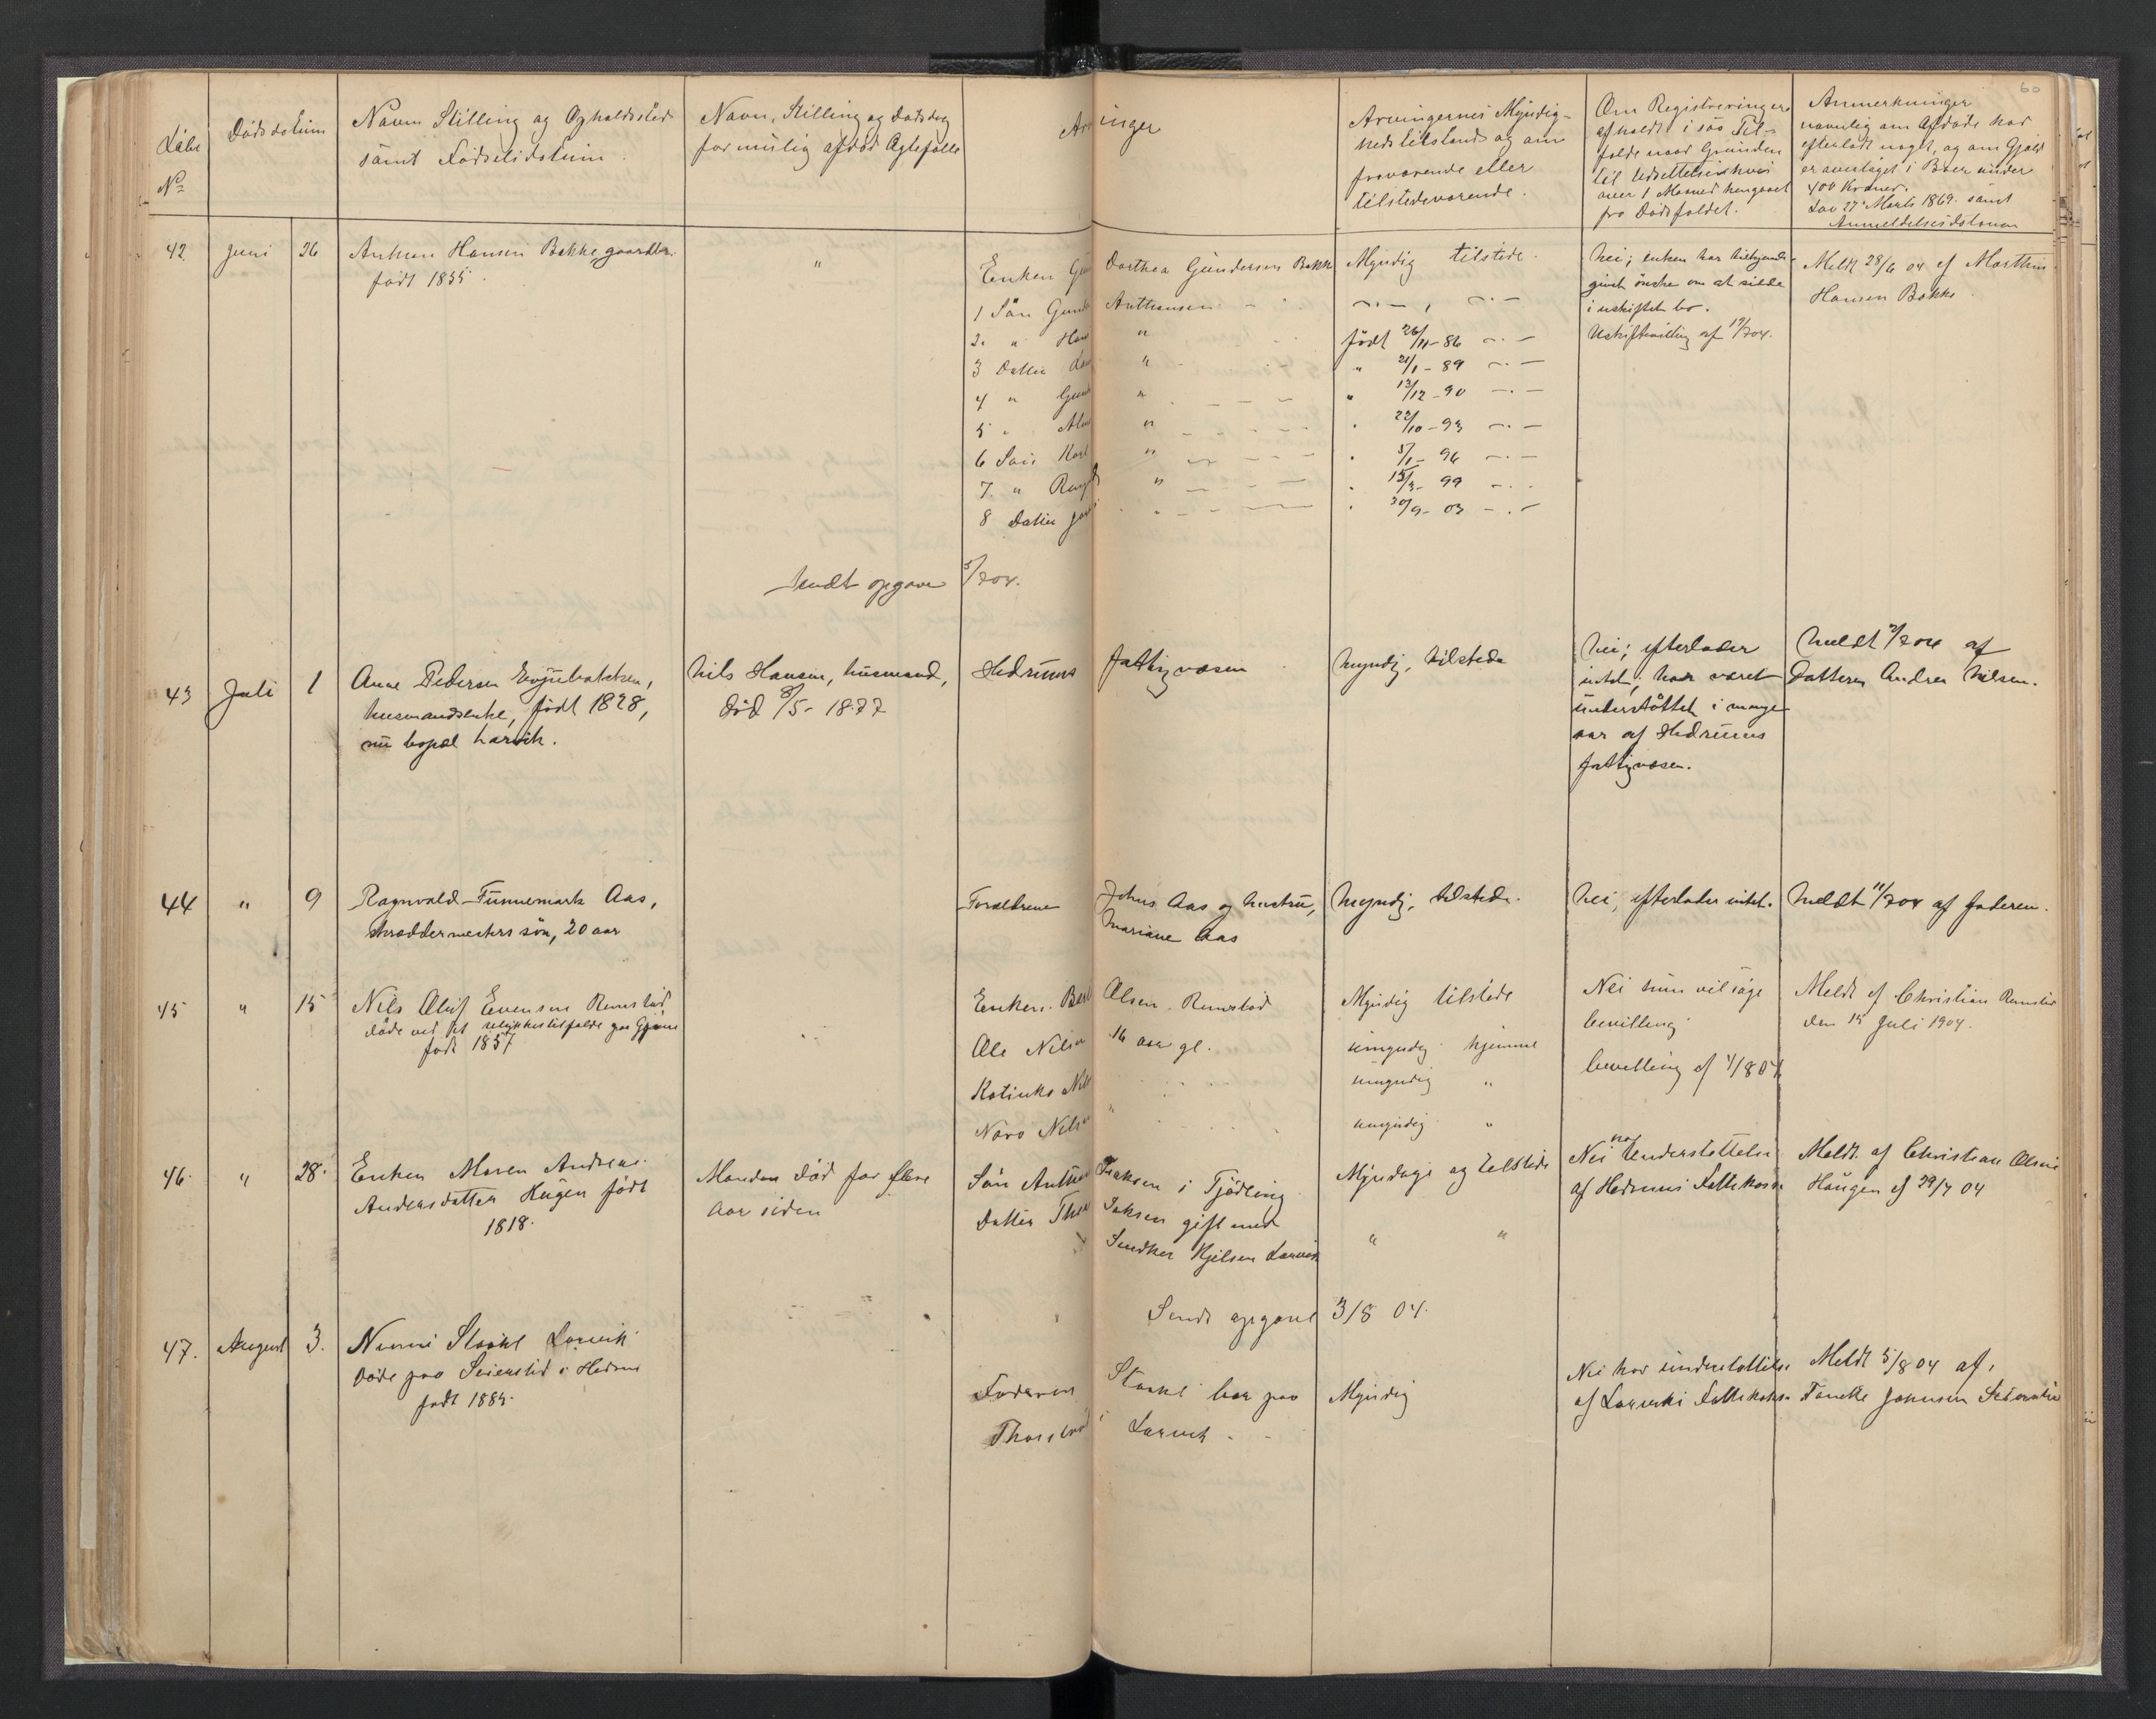 60
Løbe
No
Dødsdatum
Navn Stilling og Opholdssted
samt Fødselsdatum.
Navn, Stilling og Dødsdag
for mulig afdød Ægtefælle
Arvinger
Arvingernes Myndig-
hedstilstand og om
fraværende eller
tilstedeværende.
Om Registrering er
afholdt i saa Til-
fælde naar Grunden
til Udsættelse hvis
over 1 Maaned hengaaet
fra Dødsfaldet.
Anmerkninger
navnlig om Afdøde har
efterladt noget, og om Gjæld
er overtaget i Boer under
400 Kroner.
Lov 27 Marts 1869. samt
Anmeldelsesdatoen
42 Juni 26 Anthon Hansen Bakke, gaardbr.
født 1855.
"
Enken Dorthea Gundersen Bakke Myndig tilstede.
1 Søn Anthonsen
2. " " født 26/11-86
3 Datter " " 21/1-89
4 " " " 13/12-90
5 " 22/10-93
6 Søn Karl " 5/1-96
7. " " 15/3-99
8 Datter 30/9-03
Nei; enken har
givet ønske om at sidde
i uskiftet bo.
Uskiftebevilling af 19/7 04.
Meldt 28/6 04 af Marthin
Hansen Bakke
Sendt opgave 5/7 04.
43 Juli 1 Anne Pedersen
husmandsenke, født 1828,
nu bopæl Larvik.
Nils Hansen, husmand,
død 8/5-1877
Hedrums fattigvæsen
Myndig, tilstede
Nei; efterlader
intet; har været
understøttet i mange
aar af Hedrums
fattigvæsen.
Meldt 2/7 04 af
Datteren Andrea Nilsen.
44 " 9 Ragnvald Funnemark Aas,
skræddermesters søn, 20 aar
Forældrene Johns. Aas og hustru,
Mariane Aas
Myndig, tilstede.
Nei, efterlader intet.
Meldt 11/7 04 af faderen.
45 " 15 Nils Oluf Evensen Ramstad
døde ved et ulykkestilfælde paa
født 1857
Enken. Olsen Ramstad Myndig tilstede
Ole Nilsen 16 aar gl. umyndig hjemme
Katinka umyndig "
Nils umyndig "
Nei hun vil søge
bevilling
bevilling af 4/8 04
Meldt af Christian Ramstad
den 15 Juli 1904.
46. " 28. Enken Maren Andrea
Andersdatter Haugen født
1818.
Manden død for flere
Aar siden
Søn Anthon Isaksen i Tjødling
Datter Isaksen gift med
Kjelsen Larvik
Myndige og tilstede
" "
Nei har Understøttelse
af Hedrums Fattigkasse
Meldt af Christian Olsen
Haugen af 29/7 04
Sendt opgave 3/8 04.
47. August 3. Larvik
døde paa Seierstad i Hedrum
født 1884.
Faderen bor paa
Larvik
Myndig
Nei har understøttelse
af Larviks Fattigkasse
Meldt 5/8 04 af
Johnsen Seierstad